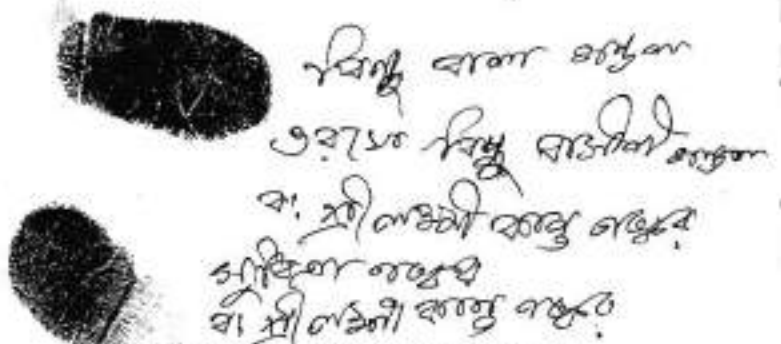 বিন্দু বালা মণ্ডল
ওরফে বিন্দু বাসীনী মণ্ডল
বঃ শ্রী লক্ষ্মী কান্ত লস্কর
লস্কর
বঃ শ্রী লক্ষ্মী কান্ত লস্কর